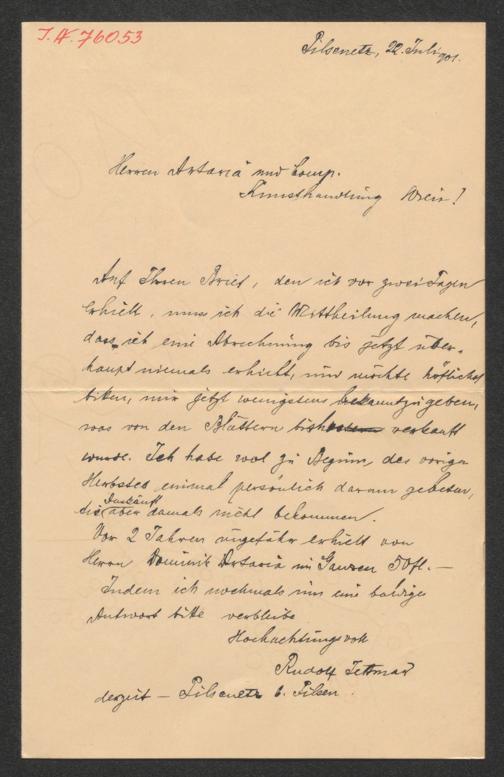 I.N. 76053
Pilsenetz, 22. Juli 901.
Herren Artaria und Comp.
Kunsthandlung Wien!
Auf Ihren Brief, den ich vor zwei Tagen
erhielt, muss ich die Mittheilung machen,
dass ich eine Abrechnung bis jetzt über-
haupt niemals erhielt, und möchte höflichst
bitten, mir jetzt wenigstens bekanntzugeben,
was von den Blättern verkauft
wurde. Ich habe wol zu Beginn des vorigen
Herbstes einmal persönlich darum gebeten,
die Auskunft aber damals nicht bekommen.
Vor 2 Jahren ungefähr erhielt von
Herrn Dominik Artaria im Ganzen 50 fl. –
Indem ich nochmals um eine baldige
Antwort bitte verbleibe
Hochachtungsvoll
Rudolf Jettmar
derzeit – Pilsenetz b. Pilsen.